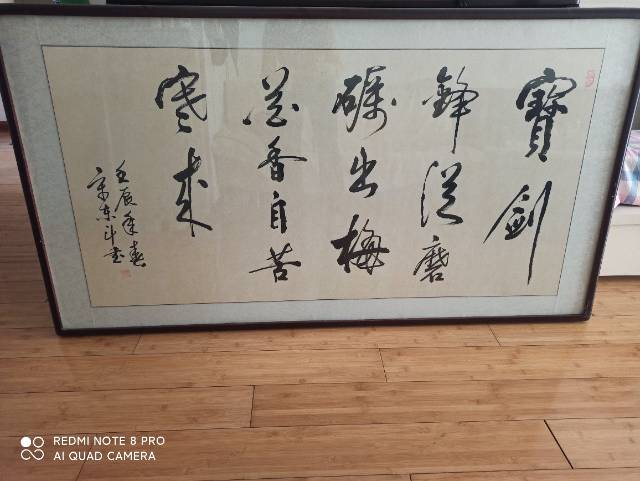 寶劍
鋒從磨
礪出梅
花香自苦
寒來
壬辰年春
東斗書
REDMI NOTE 8 PRO
AI QUAD CAMERA